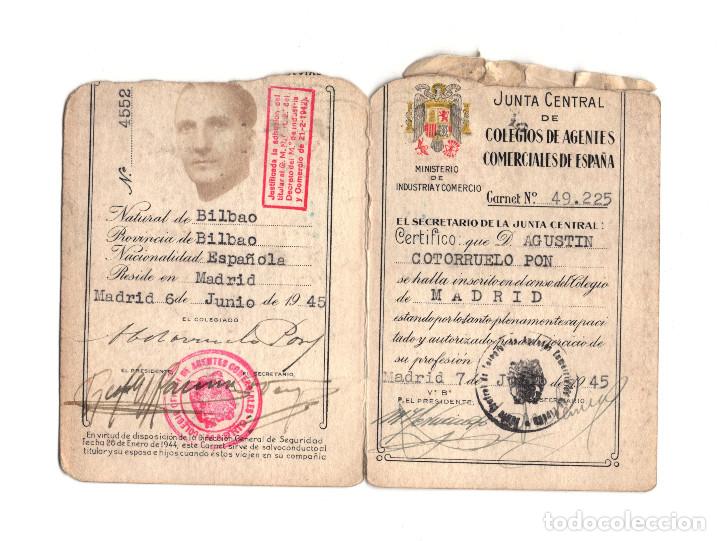 Nº 4552
Justificada la adhesion del
titular al G. N.
Decreto del Mº de Industria
y Comercio de 21-2-1942
Natural de Bilbao
Provincia de Bilbao
Nacionalidad Española
Reside en Madrid
Madrid 6 de Junio de 1945
EL COLEGIADO
EL PRESIDENTE EL SECRETARIO
DE AGENTES COMERCIALES
En virtud de disposición de la Dirección General de Seguridad
fecha 26 de Enero de 1944, este Carnet sirve de salvoconducto al
titular y su esposa e hijos cuando éstos viajen en su compañía
JUNTA CENTRAL
DE
COLEGIOS DE AGENTES
COMERCIALES DE ESPAÑA
MINISTERIO
DE
INDUSTRIA Y COMERCIO
Carnet Nº 49.225
EL SECRETARIO DE LA JUNTA CENTRAL:
Certifico: que D. AGUSTIN
COTORRUELO PON
se halla inscrito en el censo del Colegio
de MADRID
estando por lo tanto plenamente capaci-
tado y autorizado para el ejercicio de
su profesión.
Madrid 7 de de 1945
Vº Bº
P. EL PRESIDENTE. SECRETARIO
todocoleccion